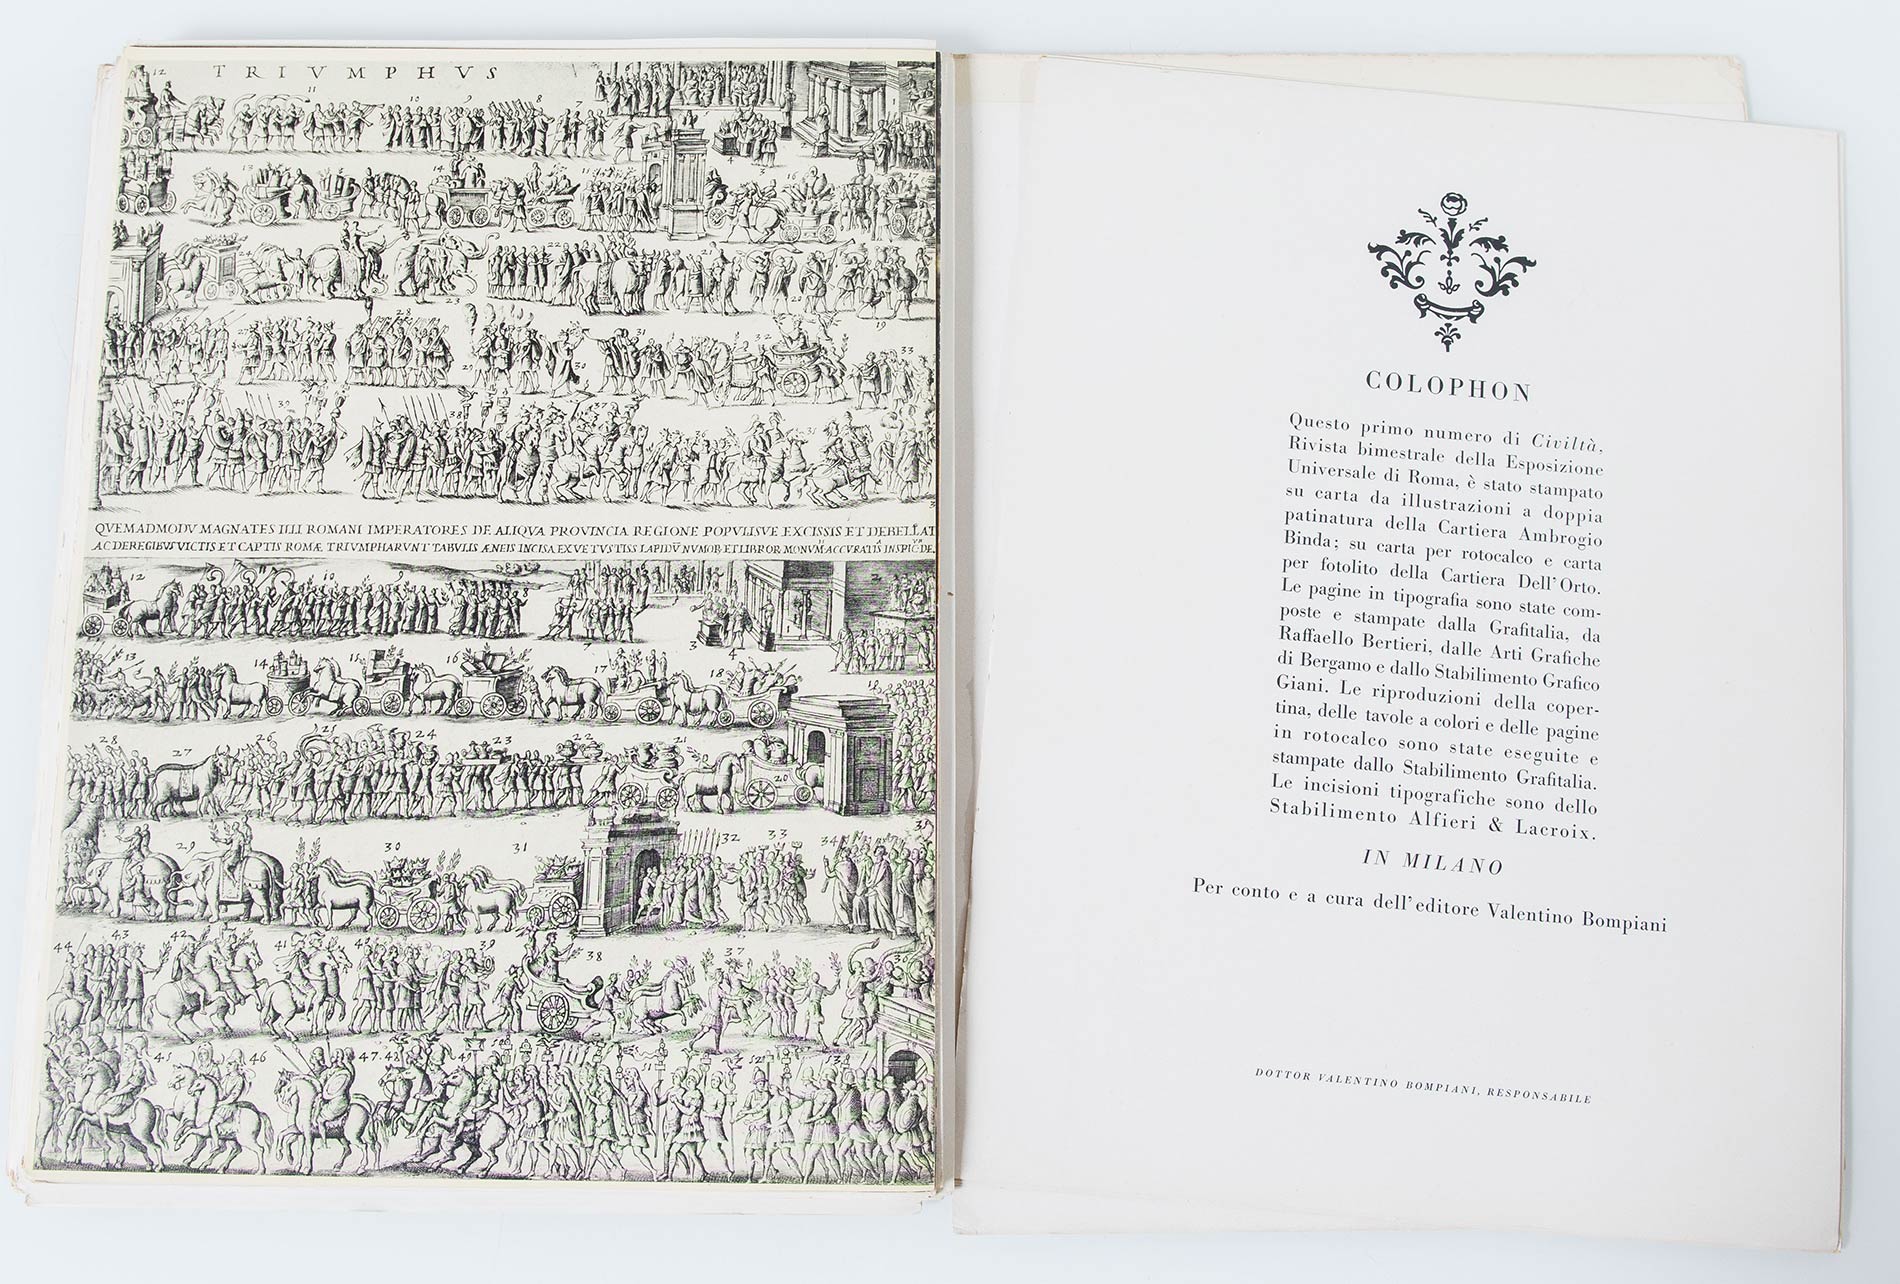 TRIVMPHVS
QVEMADMODV MAGNATES ILLI ROMANI IMPERATORES DE ALIQVA PROVINCIA REGIONE POPULISVE EXCISSIS ET DEBELLAT
AC DE REGIBUS VICTIS ET CAPTIS ROMÆ TRIVMPHARVNT TABVLIS ÆNEIS INCISA EX VETVSTISS LAPIDŪ NUMOR ET LIBROR MONVM ACCVRATIS INSPIC DE
COLOPHON
Questo primo numero di Civiltà,
Rivista bimestrale della Esposizione
Universale di Roma, è stato stampato
su carta da illustrazioni a doppia
patinatura della Cartiera Ambrogio
Binda; su carta per rotocalco e carta
per fotolito della Cartiera Dell'Orto.
Le pagine in tipografia sono state com-
poste e stampate dalla Grafitalia, da
Raffaello Bertieri, dalle Arti Grafiche
di Bergamo e dallo Stabilimento Grafico
Giani. Le riproduzioni della coper-
tina, delle tavole a colori e delle pagine
in rotocalco sono state eseguite e
stampate dallo Stabilimento Grafitalia.
Le incisioni tipografiche sono dello
Stabilimento Alfieri & Lacroix.
IN MILANO
Per conto e a cura dell'editore Valentino Bompiani
DOTTOR VALENTINO BOMPIANI, RESPONSABILE